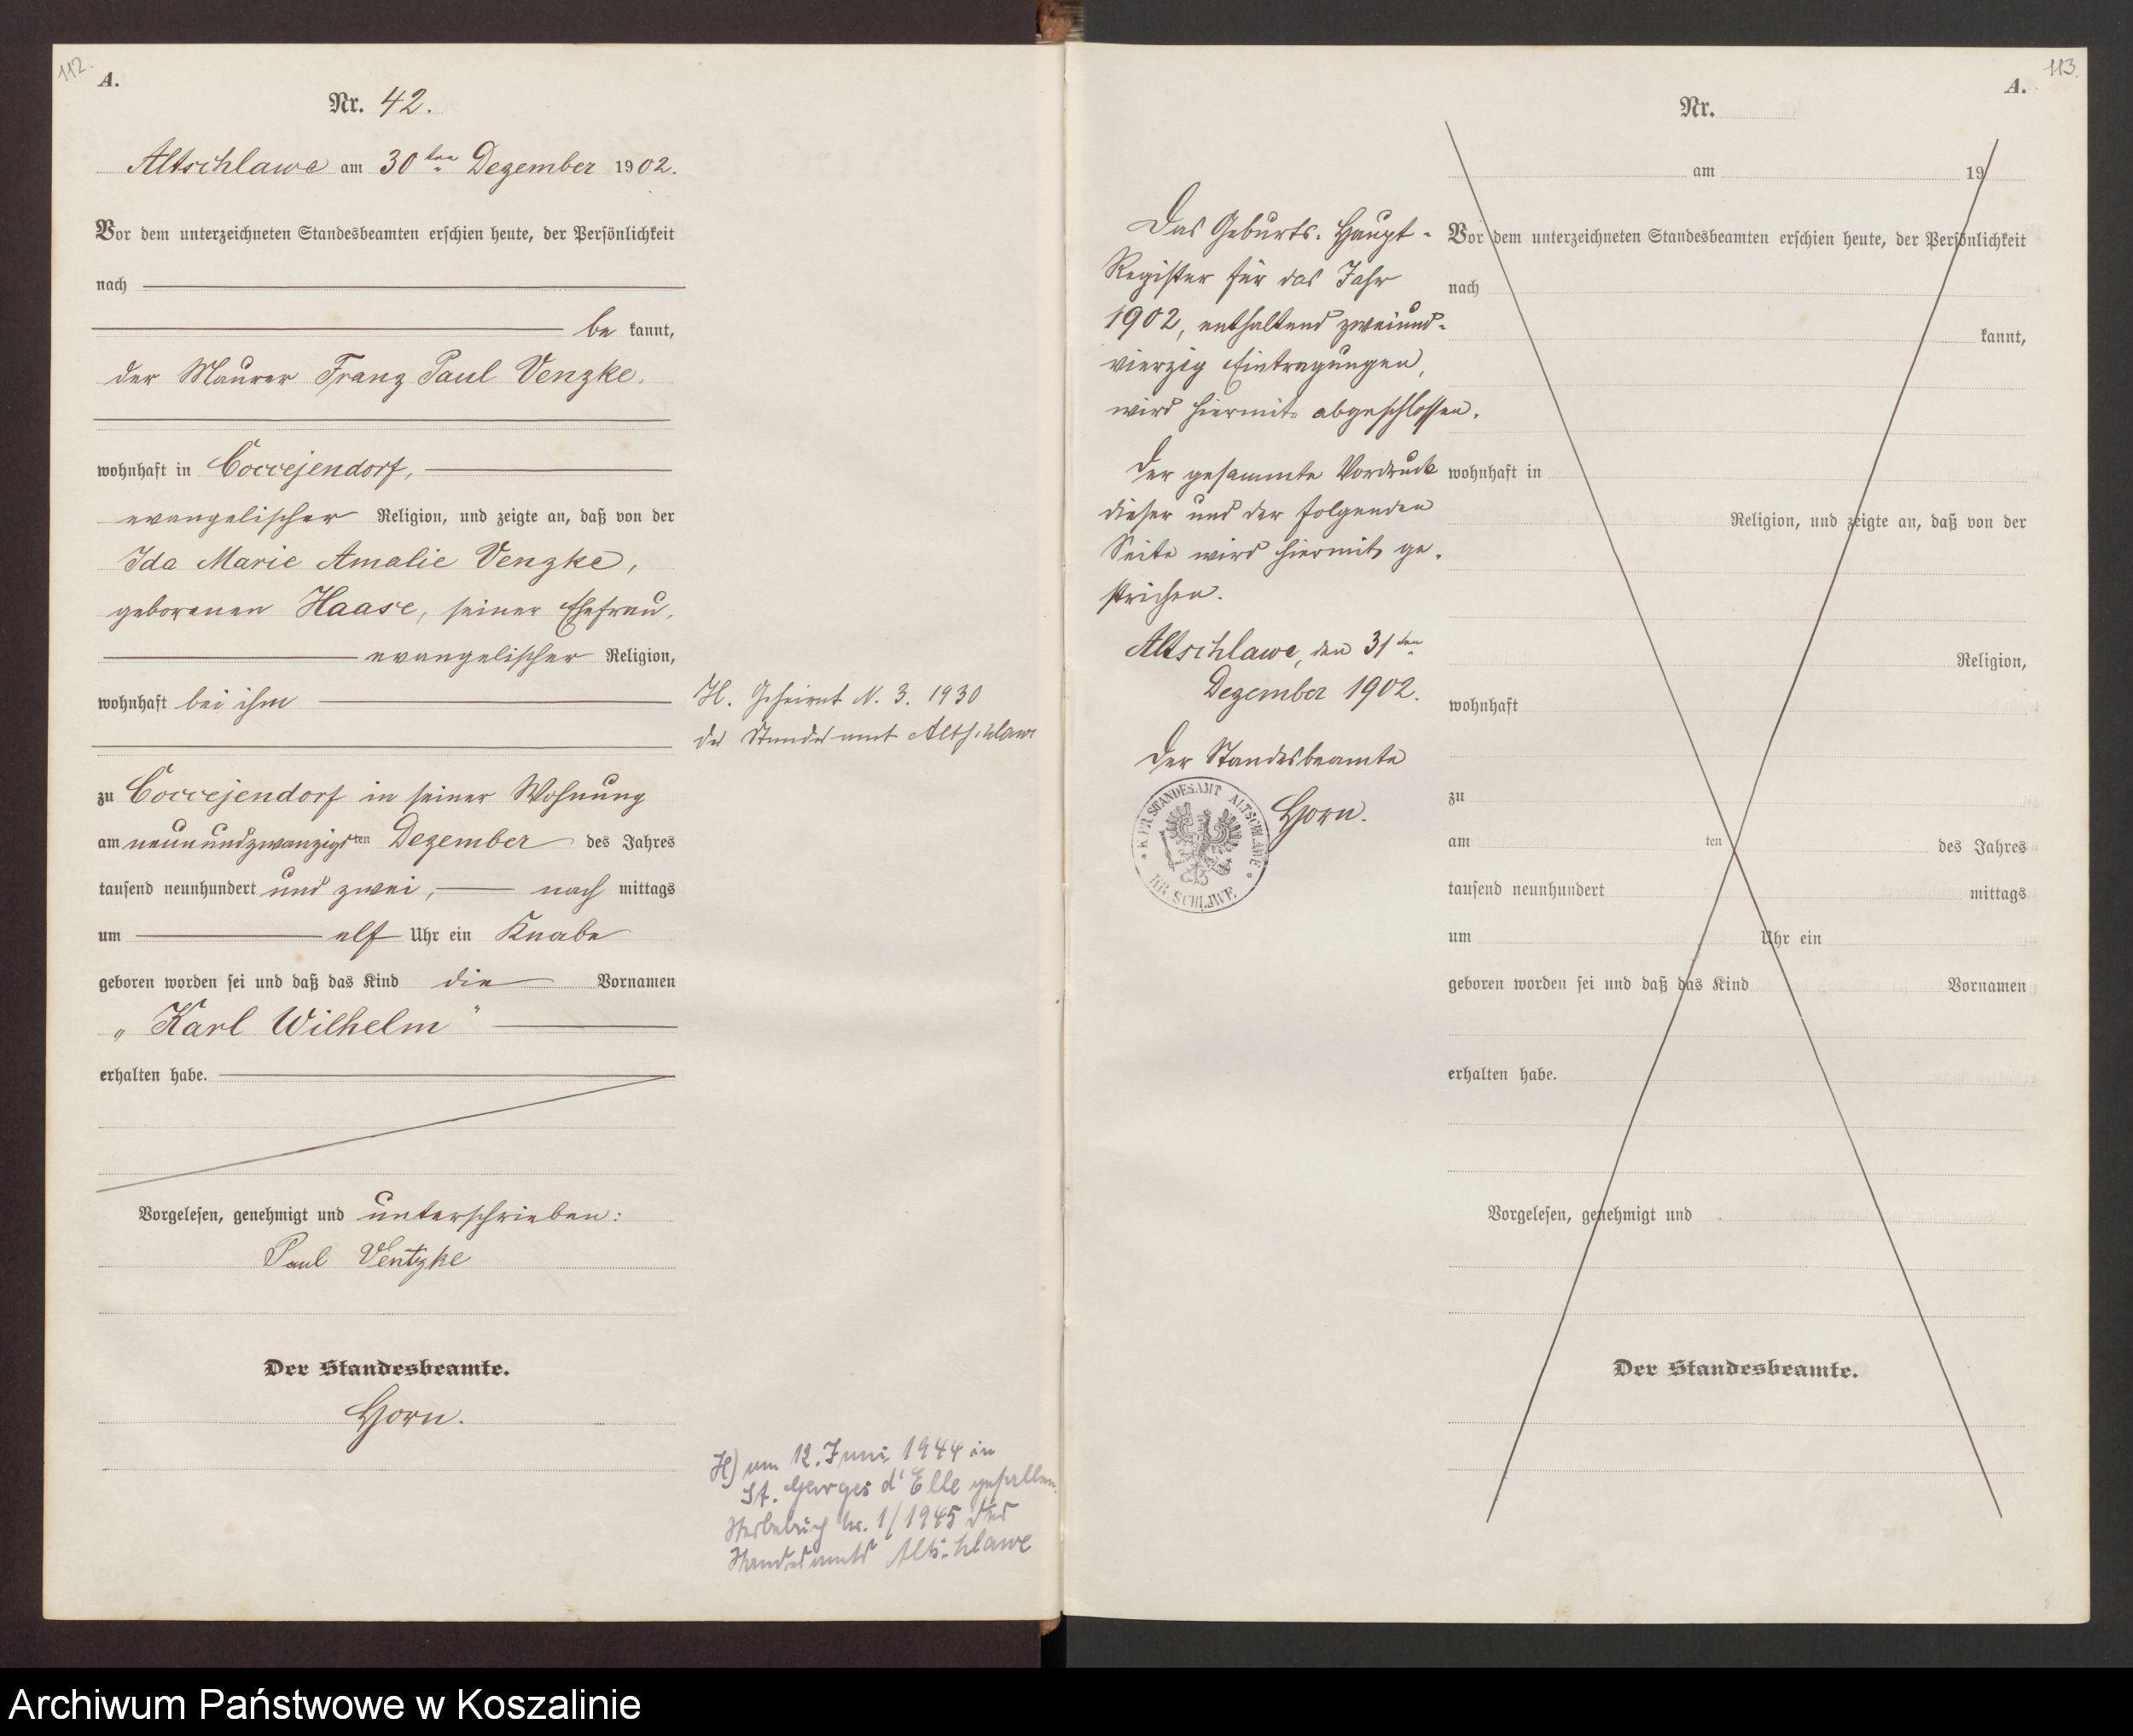 112.
A.
Nr. 42.
Altschlawe am 30ten Dezember 1902.
Vor dem unterzeichneten Standesbeamten erschien heute, der Persönlichkeit
nach
be kannt,
der Maurer Franz Paul Venzke,
wohnhaft in Coccejendorf,
evangelischer Religion, und zeigte an, daß von der
Ida Marie Amalie Venzke,
geborenen Haase, seiner Ehefrau,
evangelischer Religion,
wohnhaft bei ihm
zu Coccejendorf in seiner Wohnung
am neunundzwanzigsten Dezember des Jahres
tausend neunhundert und zwei, nach mittags
um elf Uhr ein Knabe
geboren worden sei und daß das Kind die Vornamen
„Karl Wilhelm"
erhalten habe.
Vorgelesen, genehmigt und unterschrieben:
Paul Ventzke
Der Standesbeamte.
Horn.
H. Geheirat N. 3. 1930
des Standesamt Altschlawe
H) am 12. Juni 1944 in
St. Georges d'Elle gefallen.
Sterbebuch Nr. 1/1945 des
Standesamts Altschlawe
113.
A.
Das Geburts-Haupt-
Register für das Jahr
1902, enthaltend zweiund-
vierzig Eintragungen,
wird hiermit abgeschlossen.
Der gesammte Vordruck
dieser und der folgenden
Seite wird hiermit ge-
strichen.
Altschlawe, den 31ten
Dezember 1902.
Der Standesbeamte
Horn.
STANDESAMT ALTSCHLAWE
KR. SCHLAWE
Nr.
am 19
Vor dem unterzeichneten Standesbeamten erschien heute, der Persönlichkeit
nach
kannt,
wohnhaft in
Religion, und zeigte an, daß von der
Religion,
wohnhaft
zu
am ten des Jahres
tausend neunhundert mittags
um Uhr ein
geboren worden sei und daß das Kind Vornamen
erhalten habe.
Vorgelesen, genehmigt und
Der Standesbeamte.
Archiwum Państwowe w Koszalinie